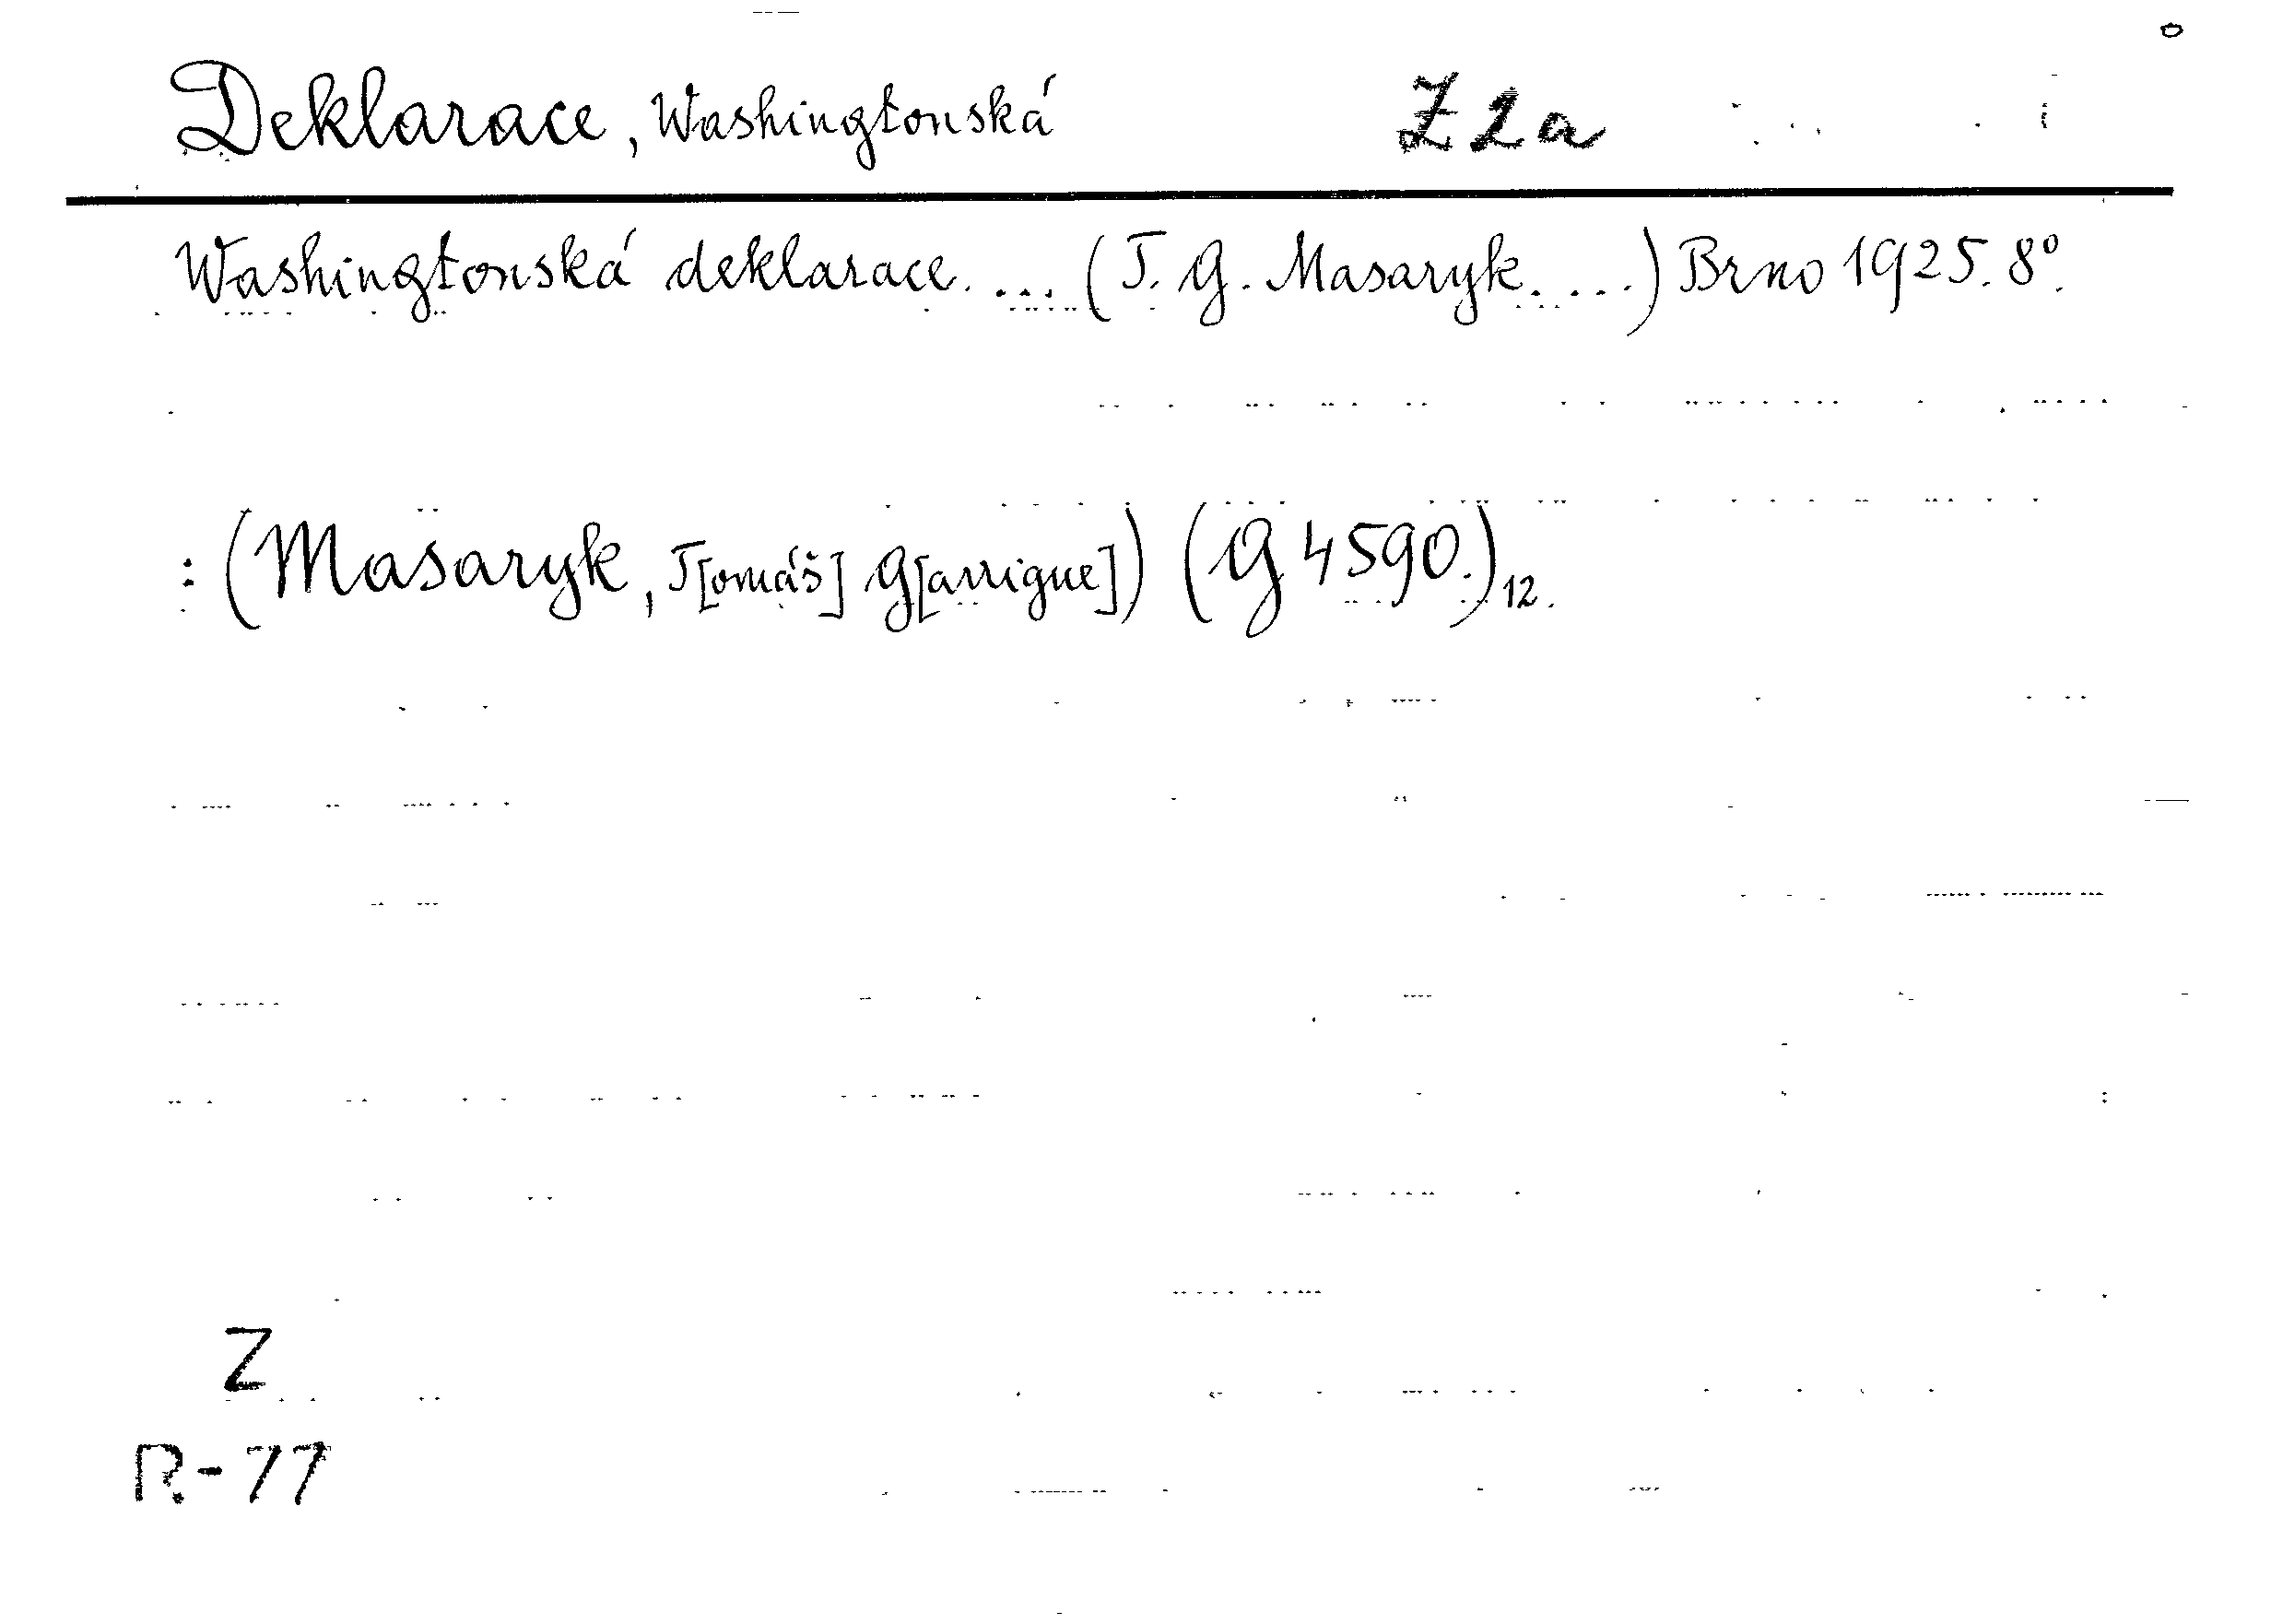 Deklarace, Washingtonská Z 2a
Washingtonská deklarace. ... (T. G. Masaryk. ...) Brno 1925. 8º.
: (Masaryk, T[omáš] G[arrigue]) (G 4590.) 12.
Z
R-77